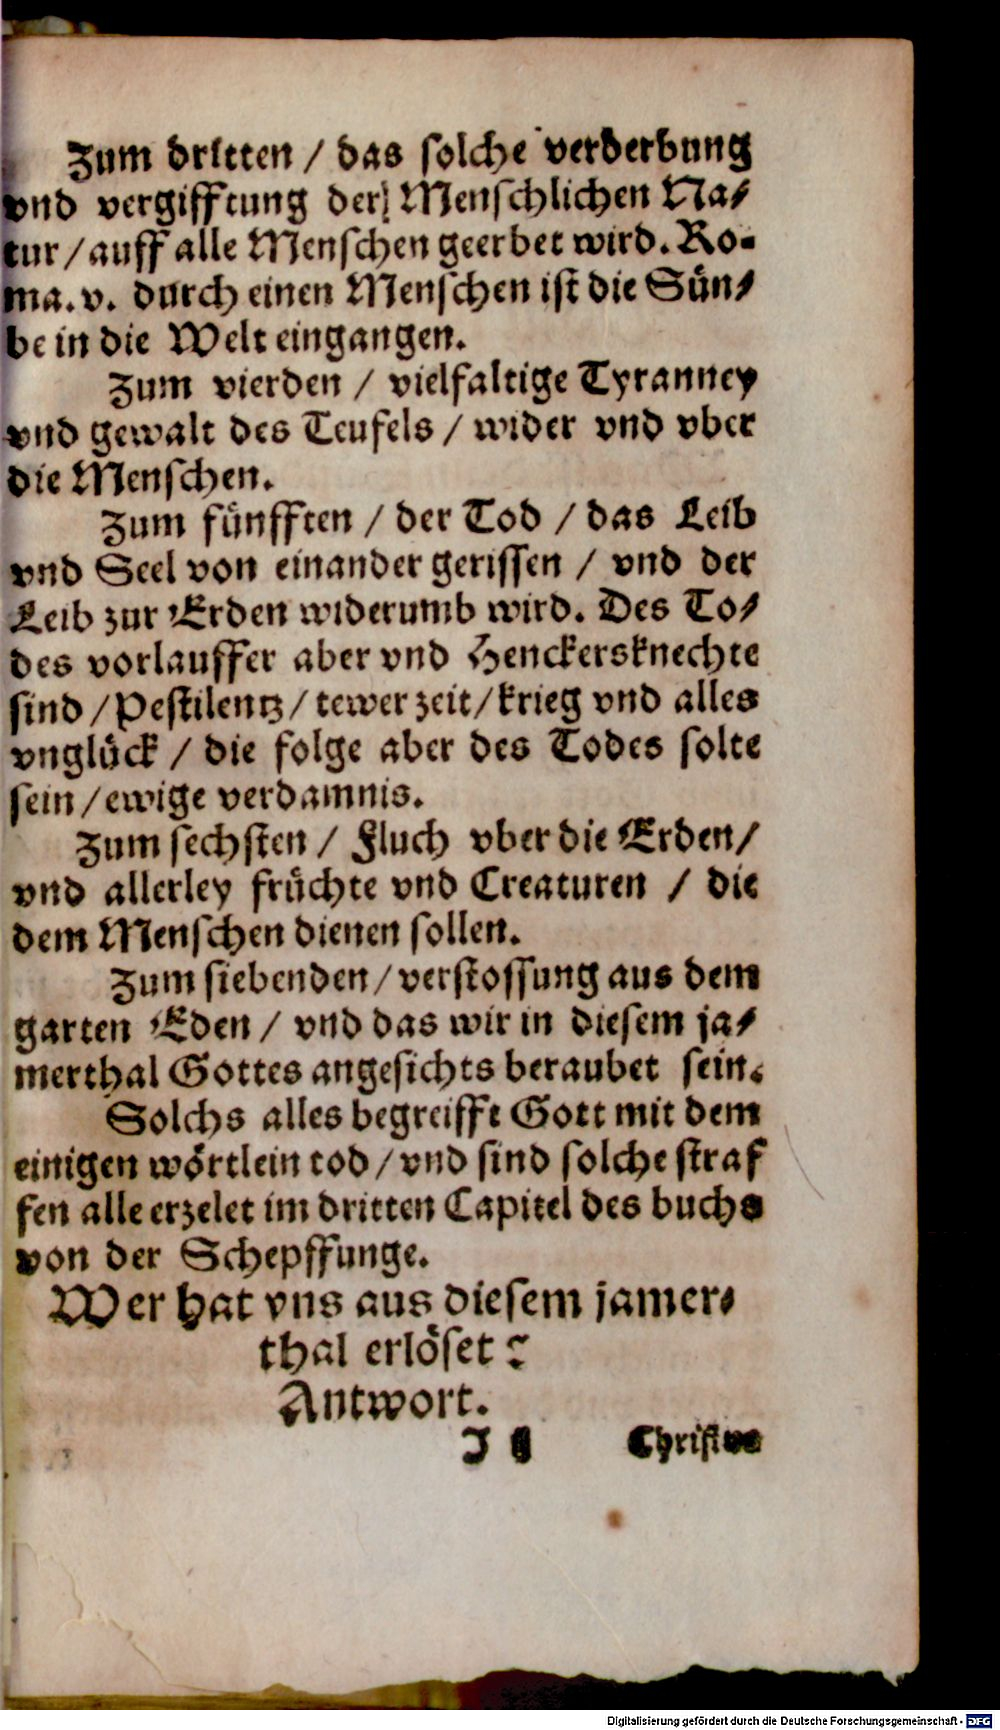 Zum dritten / das solche verderbung
vnd vergifftung der Menschlichen Na-
tur / auff alle Menschen geerbet wird. Ro-
ma. v. durch einen Menschen ist die Sün-
de in die Welt eingangen.
Zum vierden / vielfaltige Tyranney
vnd gewalt des Teufels / wider vnd vber
die Menschen.
Zum fünfften / der Tod / das Leib
vnd Seel von einander gerissen / vnd der
Leib zur Erden widerumb wird. Des To-
des vorlauffer aber vnd Henckersknechte
sind / Pestilentz / tewer zeit / krieg vnd alles
vnglück / die folge aber des Todes solte
sein / ewige verdamnis.
Zum sechsten / Fluch vber die Erden /
vnd allerley früchte vnd Creaturen / die
dem Menschen dienen sollen.
Zum siebenden / verstossung aus dem
garten Eden / vnd das wir in diesem ja-
merthal Gottes angesichts beraubet sein.
Solchs alles begreifft Gott mit dem
einigen wörtlein tod / vnd sind solche straf
fen alle erzelet im dritten Capitel des buchs
von der Schepffunge.
Wer hat vns aus diesem jamer-
thal erlöset?
Antwort.
J Christus
Digitalisierung gefördert durch die Deutsche Forschungsgemeinschaft - DFG